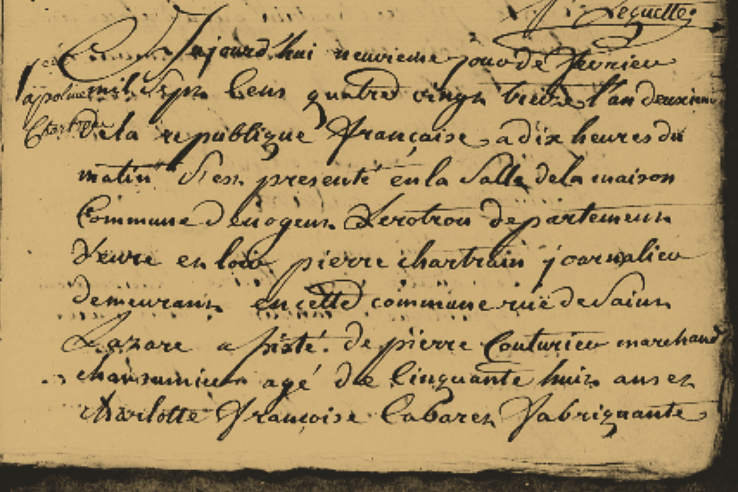 Lequette
Aujourd'hui neuvieme jour de fevrier
mil sept cens quatre vingt treize l'an deuxieme
apoline
Chartrain
de la republique française a dix heures du
matin s'est presenté en la salle de la maison
Commune de nogent Lerotrou departement
d'eure en loir pierre chartrain journalier
demeurant en cette commune rue de saint
Lazare assisté de pierre Couturier marchand
chaudronnier agé de Cinquante huit ans et
charlotte françoise Cabaret fabriquante